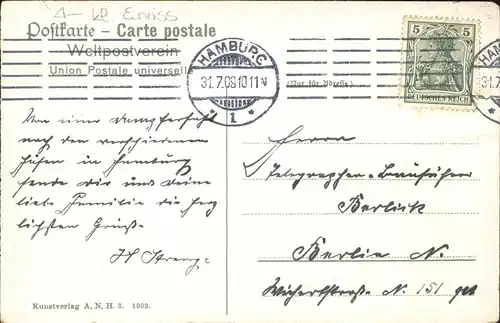 1- kl. Einriss
Postkarte – Carte postale
Weltpostverein
Union Postale universelle
HAMBURG
31.7.09.10-11V
* 1 *
(Nur für Adresse)
5 5
DEUTSCHES REICH
31.7
Von einer Dampferfahrt
nach den verschiedenen
Häfen in Hamburg
sende Dir und Deine
liebe Familie die herz
lichsten Grüße
Herrn
Telegraphen-Bauführer
Berlick
Berlin N.
Wichertstraße N. 151
Kunstverlag A. N. H. 3. 1909.